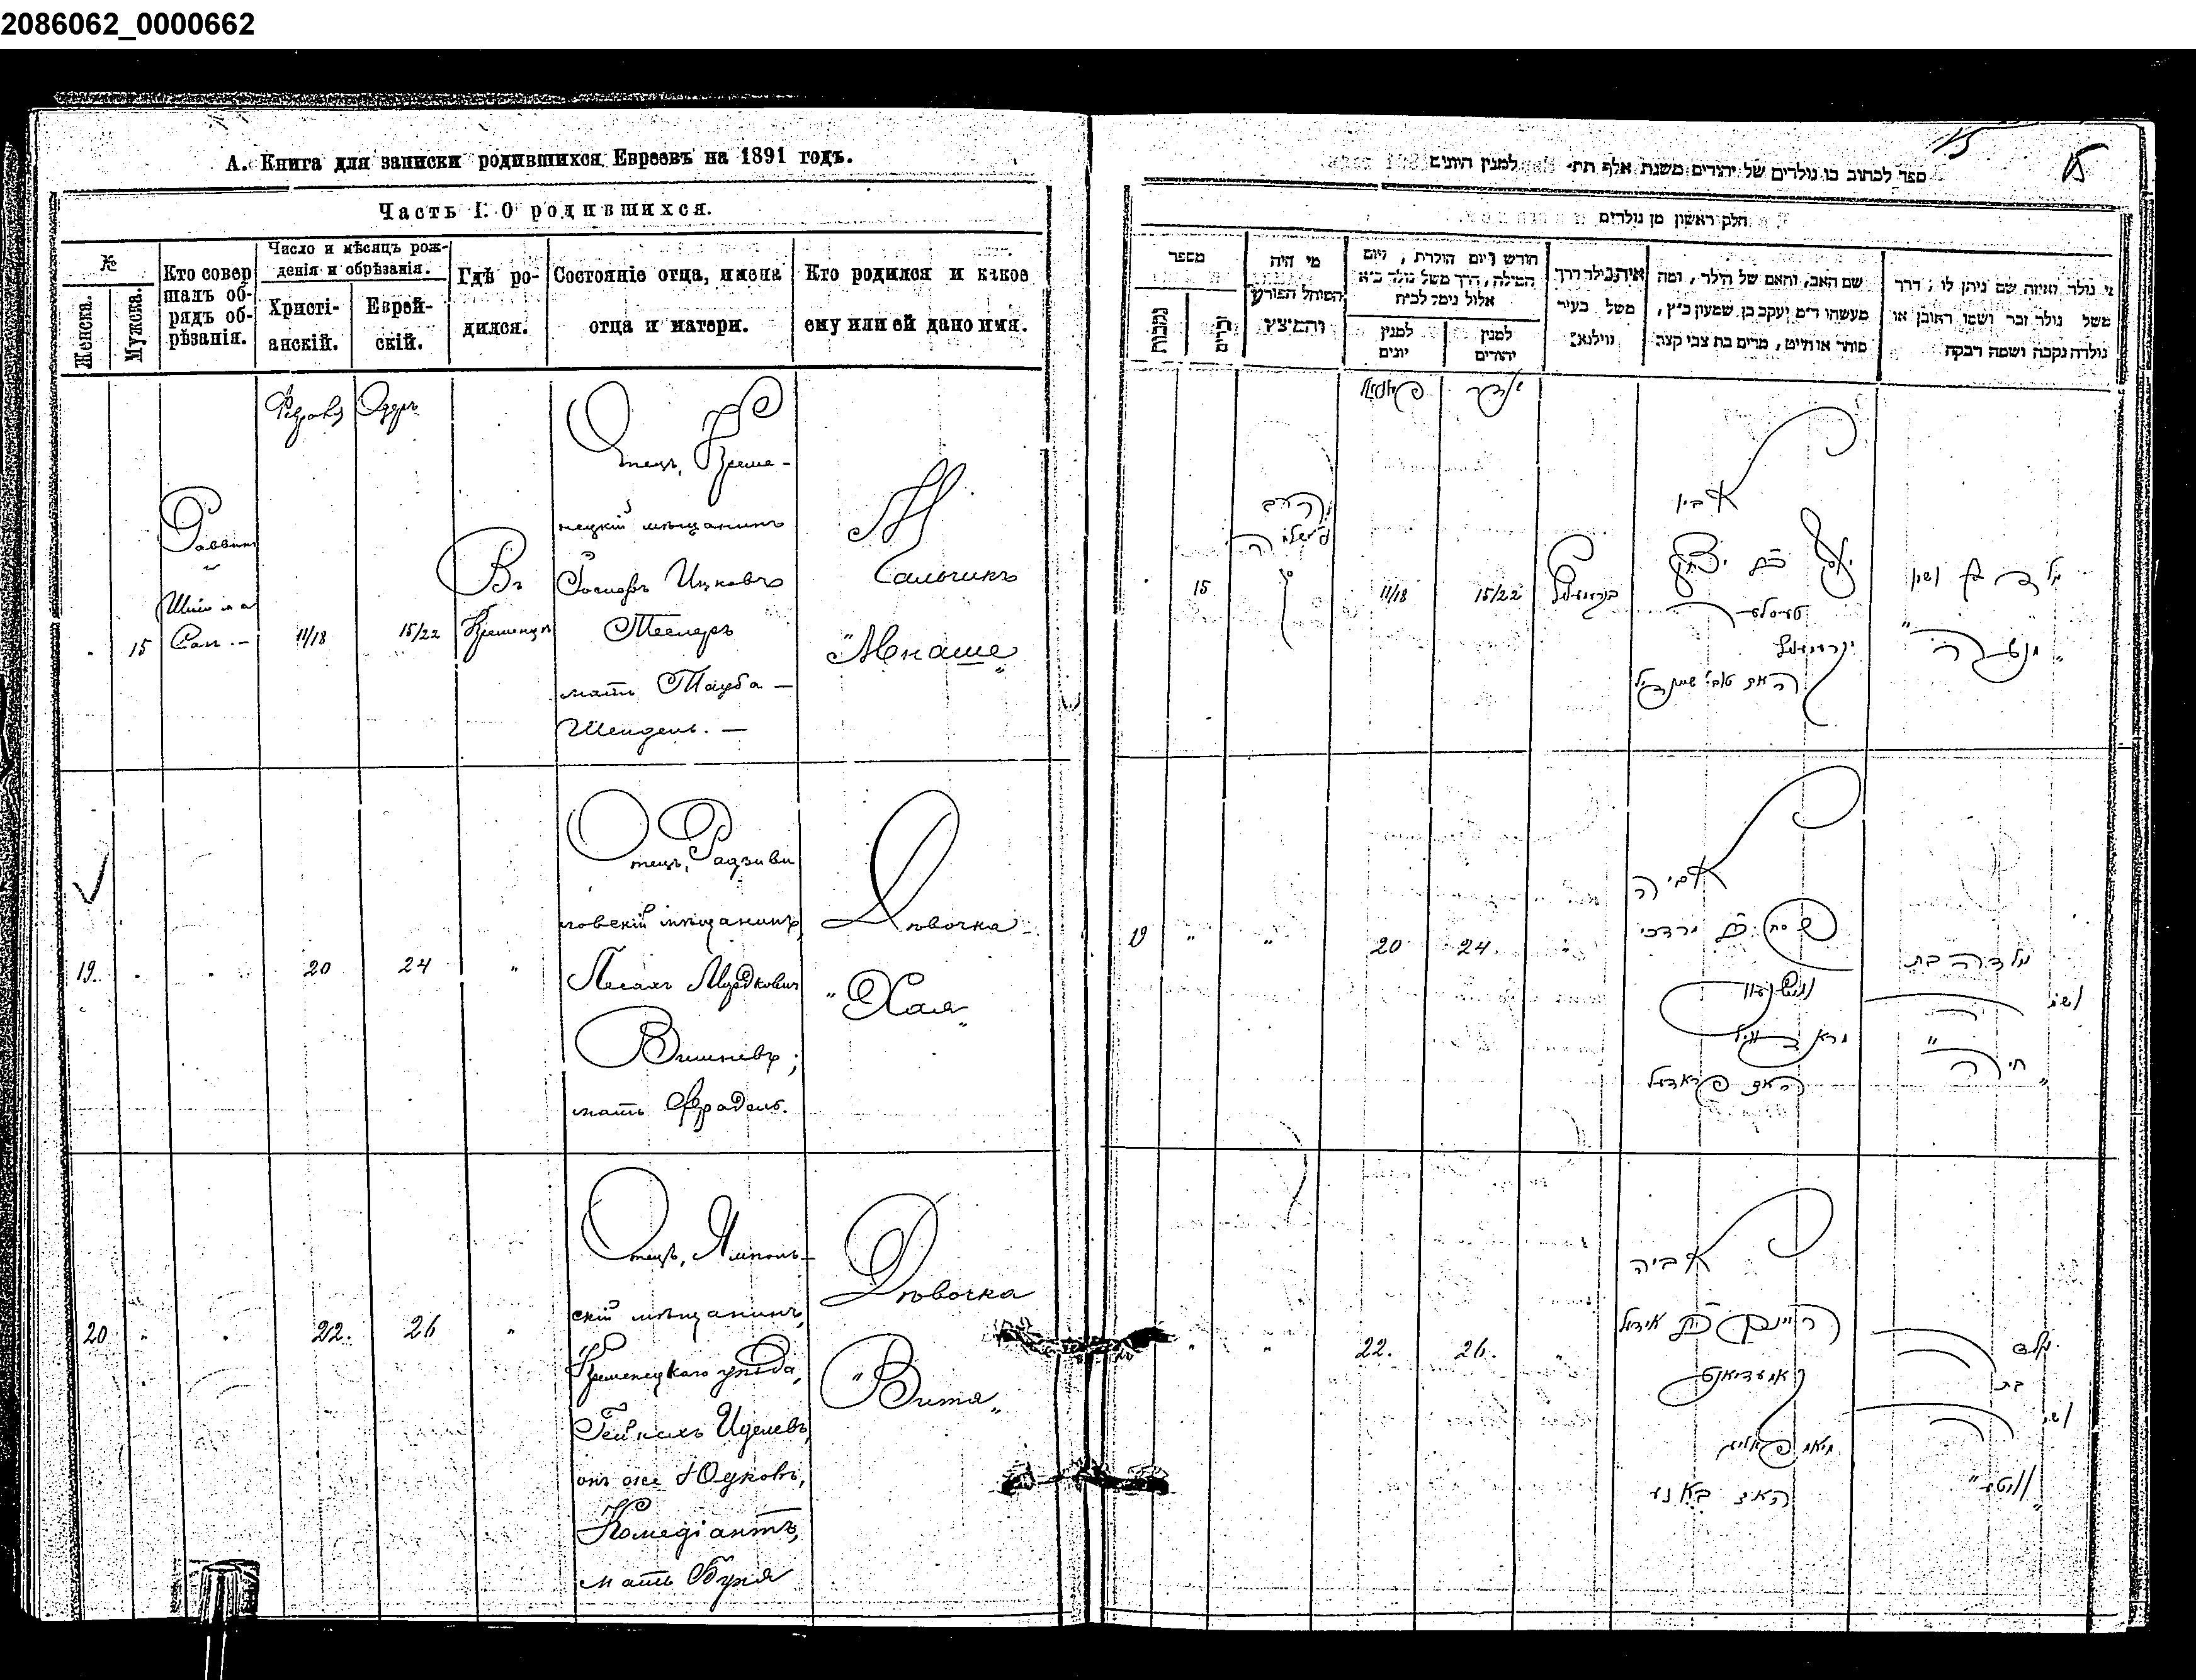 2086062_0000662
А. Книга для записки родившихся Евреевъ на 1891 годъ.
Часть I. О родившихся.
№
Женска.
Мужска.
Кто совер
шалъ об-
рядъ об-
рѣзанія.
Число и мѣсяцъ рож-
денія и обрѣзанія.
Христі-
анскій.
Еврей-
скій.
Гдѣ ро-
дился.
Состояніе отца, имена
отца и матери.
Кто родился и какое
ему или ей дано имя.
15
Раввин
Шій
11/18
Адеръ
15/22
Въ
Кременцѣ
Отецъ, Креме-
нецкій мѣщанинъ
Іосифъ Ицковъ
Теслеръ
мать Тауба -
Шейдель. -
Мальчикъ
"Менаше"
19.
20
24
"
Отецъ, Радзиви
ловскій мѣщанинъ,
Песахъ Мордковичъ
Вишневъ;
мать Фрадель.
Дѣвочка
"Хая"
20
"
22.
26
"
Отецъ, Ямполь-
скій мѣщанинъ,
Кременецкаго уѣзда,
Гейнахъ Иделевъ,
онъ же Юдковъ,
Комедіантъ,
мать Буня
Дѣвочка
"Витя"
15
15
ספר לכתוב בו נולדים של יהודים משנת אלף תת״ למנין היונים
חלק ראשון מן נולדים
מספר
נקבות
זכרים
מי היה
המוהל הפורע
והמיצץ
חודש ויום הולדת, ויום
המילה, דרך משל נולד כ״א
אלול נימל לכ״ח
למנין
יונים
למנין
יהודים
איה נולד דרך
משל בעיר
ווילנא:
שם האב, והאם של הילד, ומה
מעשהו ר״מ יעקב בן שמעון כ״ץ,
סוחר או חייט, מרים בת צבי קצה
מי נולד ואיזה שם ניתן לו, דרך
משל נולד זכר ושמו ראובן או
נולדה נקבה ושמה רבקה
15
הרב
11/18
אדר
15/22
אביו
יוסף בן יצחק
טעסלער
נולד בן ושמו
"מנשה"
19
"
"
20
24
"
אביה
פסח בן מרדכי
האם פראדיל
נולדה בת
ושמה
"חיה"
"
"
22.
26.
"
אביה
היינך בן אידיל
קאמעדיאנט
האם באניע
נולדה
בת
ושמה